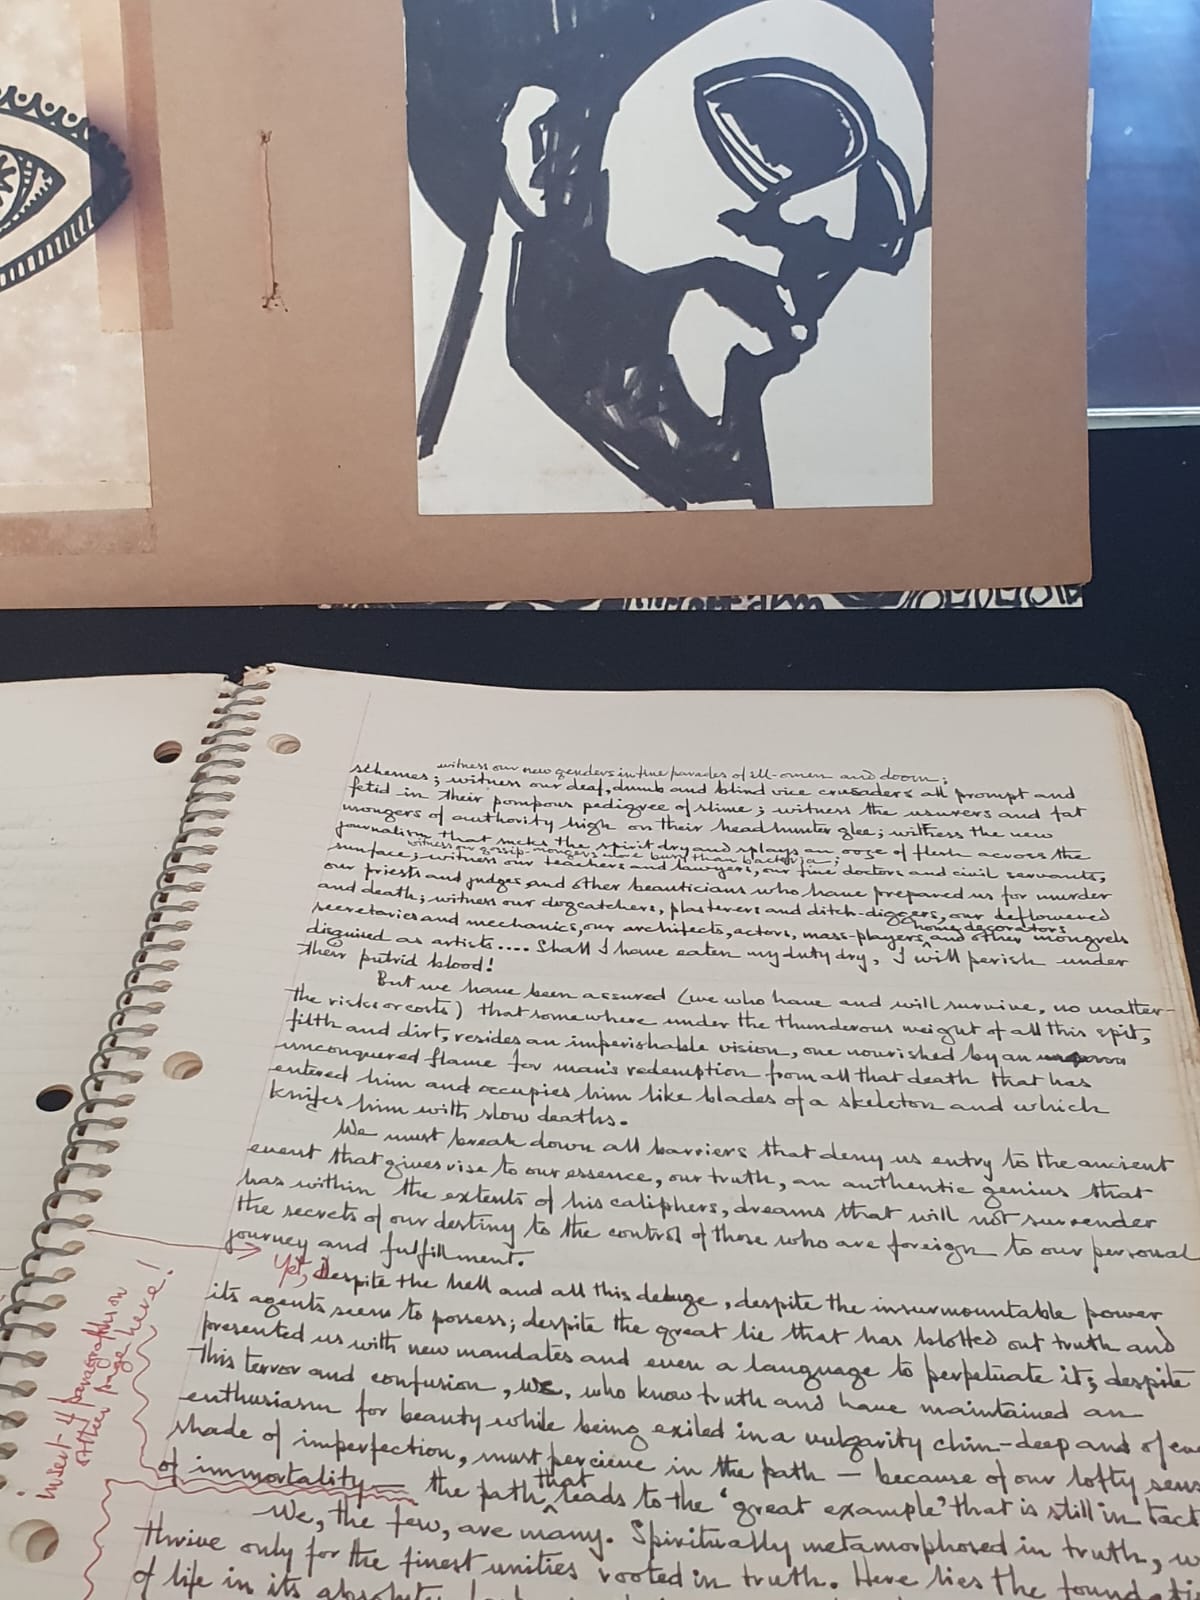 witness our new genders in fine parades of ill-omen and doom;
schemes; witness our deaf, dumb and blind vice crusaders all prompt and
fetid in their pompous pedigree of slime; witness the usurers and fat
mongers of authority high on their headhunter glee; witness the new
journalism that sucks the spirit dry and splays an ooze of flesh across the
witness our gossip-mongers more busy than bacteria;
surface; witness our teachers and lawyers, our fine doctors and civil servants,
our priests and judges and other beauticians who have prepared us for murder
and death; witness our dogcatchers, plasterers and ditch-diggers, our deflowered
home decorators
secretaries and mechanics, our architects, actors, mass-players, and other mongrels
disguised as artists.... Shall I have eaten my duty dry, I will perish under
their putrid blood!
But we have been assured (we who have and will survive, no matter
the risks or costs) that somewhere under the thunderous weight of all this spit,
filth and dirt, resides an imperishable vision, one nourished by an
unconquered flame for man's redemption from all that death that has
entered him and occupies him like blades of a skeleton and which
knifes him with slow deaths.
We must break down all barriers that deny us entry to the ancient
event that gives rise to our essence, our truth, an authentic genius that
has within the extents of his caliphers, dreams that will not surrender
the secrets of our destiny to the control of those who are foreign to our personal
journey and fulfillment.
Yet, despite the hell and all this deluge, despite the insurmountable power
its agents seem to possess; despite the great lie that has blotted out truth and
presented us with new mandates and even a language to perpetuate it; despite
this terror and confusion, we, who know truth and have maintained an
enthusiasm for beauty while being exiled in a vulgarity chin-deep and of
shade of imperfection, must percieve in the path — because of our lofty
of immortality — the path that leads to the 'great example' that is still in tact
We, the few, are many. Spiritually metamorphosed in truth,
thrive only for the finest unities rooted in truth. Here lies the
of life in its
insert 4 paragraphs on
other page here!